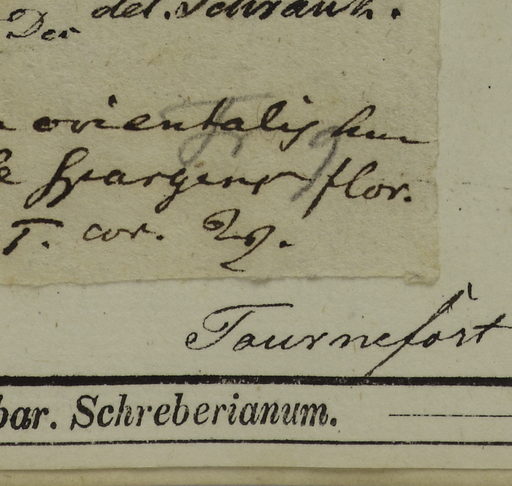 del. Schrank.
Dec
orientalis hum
spargens flor.
T. cor. 29.
Tournefort
bar. Schreberianum.